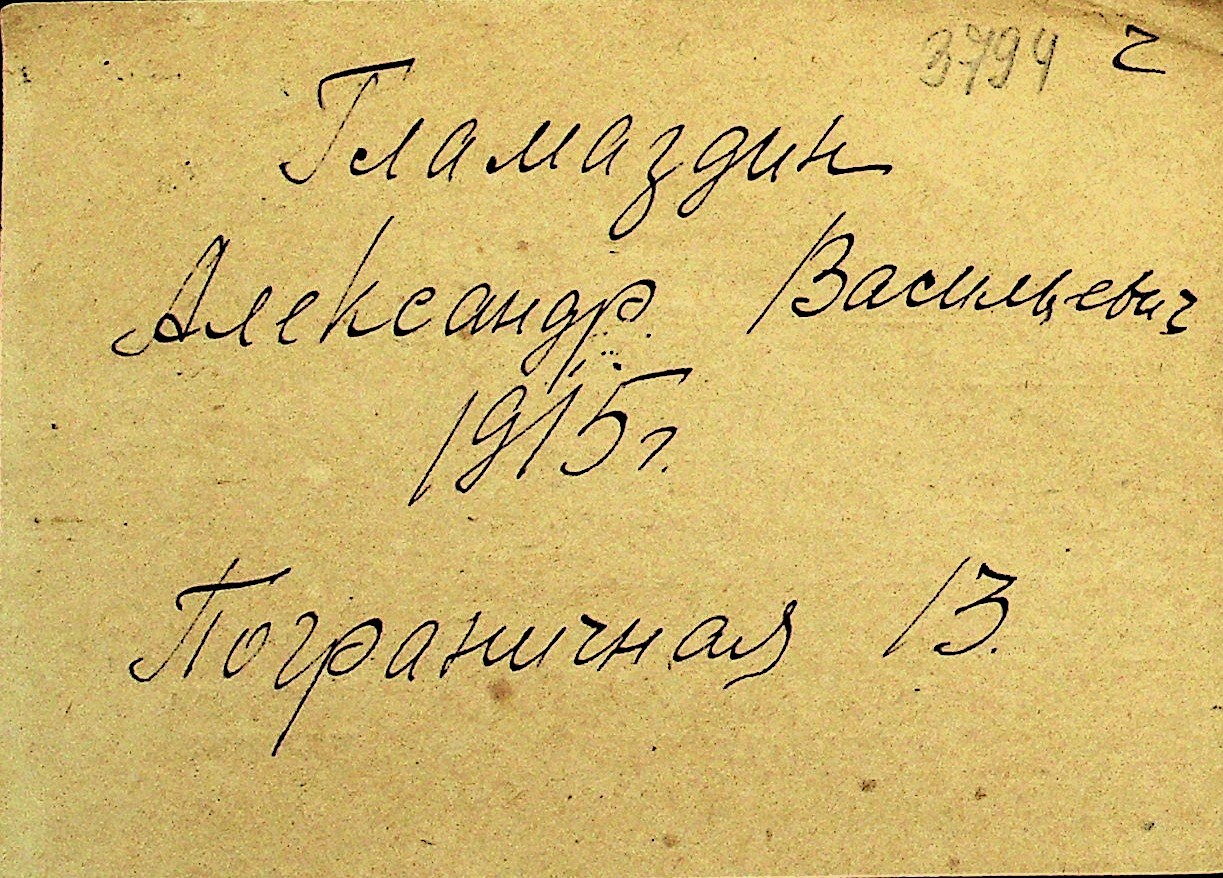 3794 г
Гламаздин
Александр Васильевич
1915г.
Пограничная 13.